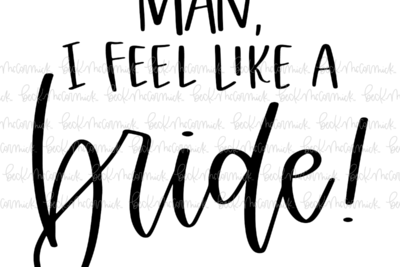 MAN,
I FEEL LIKE A
bride!